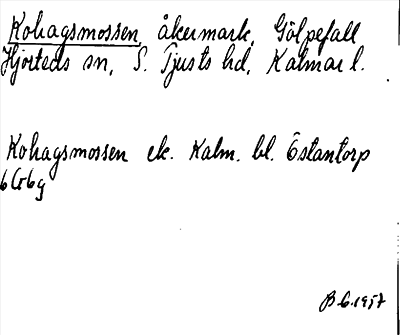 Kohagsmossen, åkermark, Gölpefall
Hjorteds sn, S. Tjusts hd, Kalmar l.
Kohagsmossen ek. Kalm. bl. Östantorp
6G6g
B.G. 1957